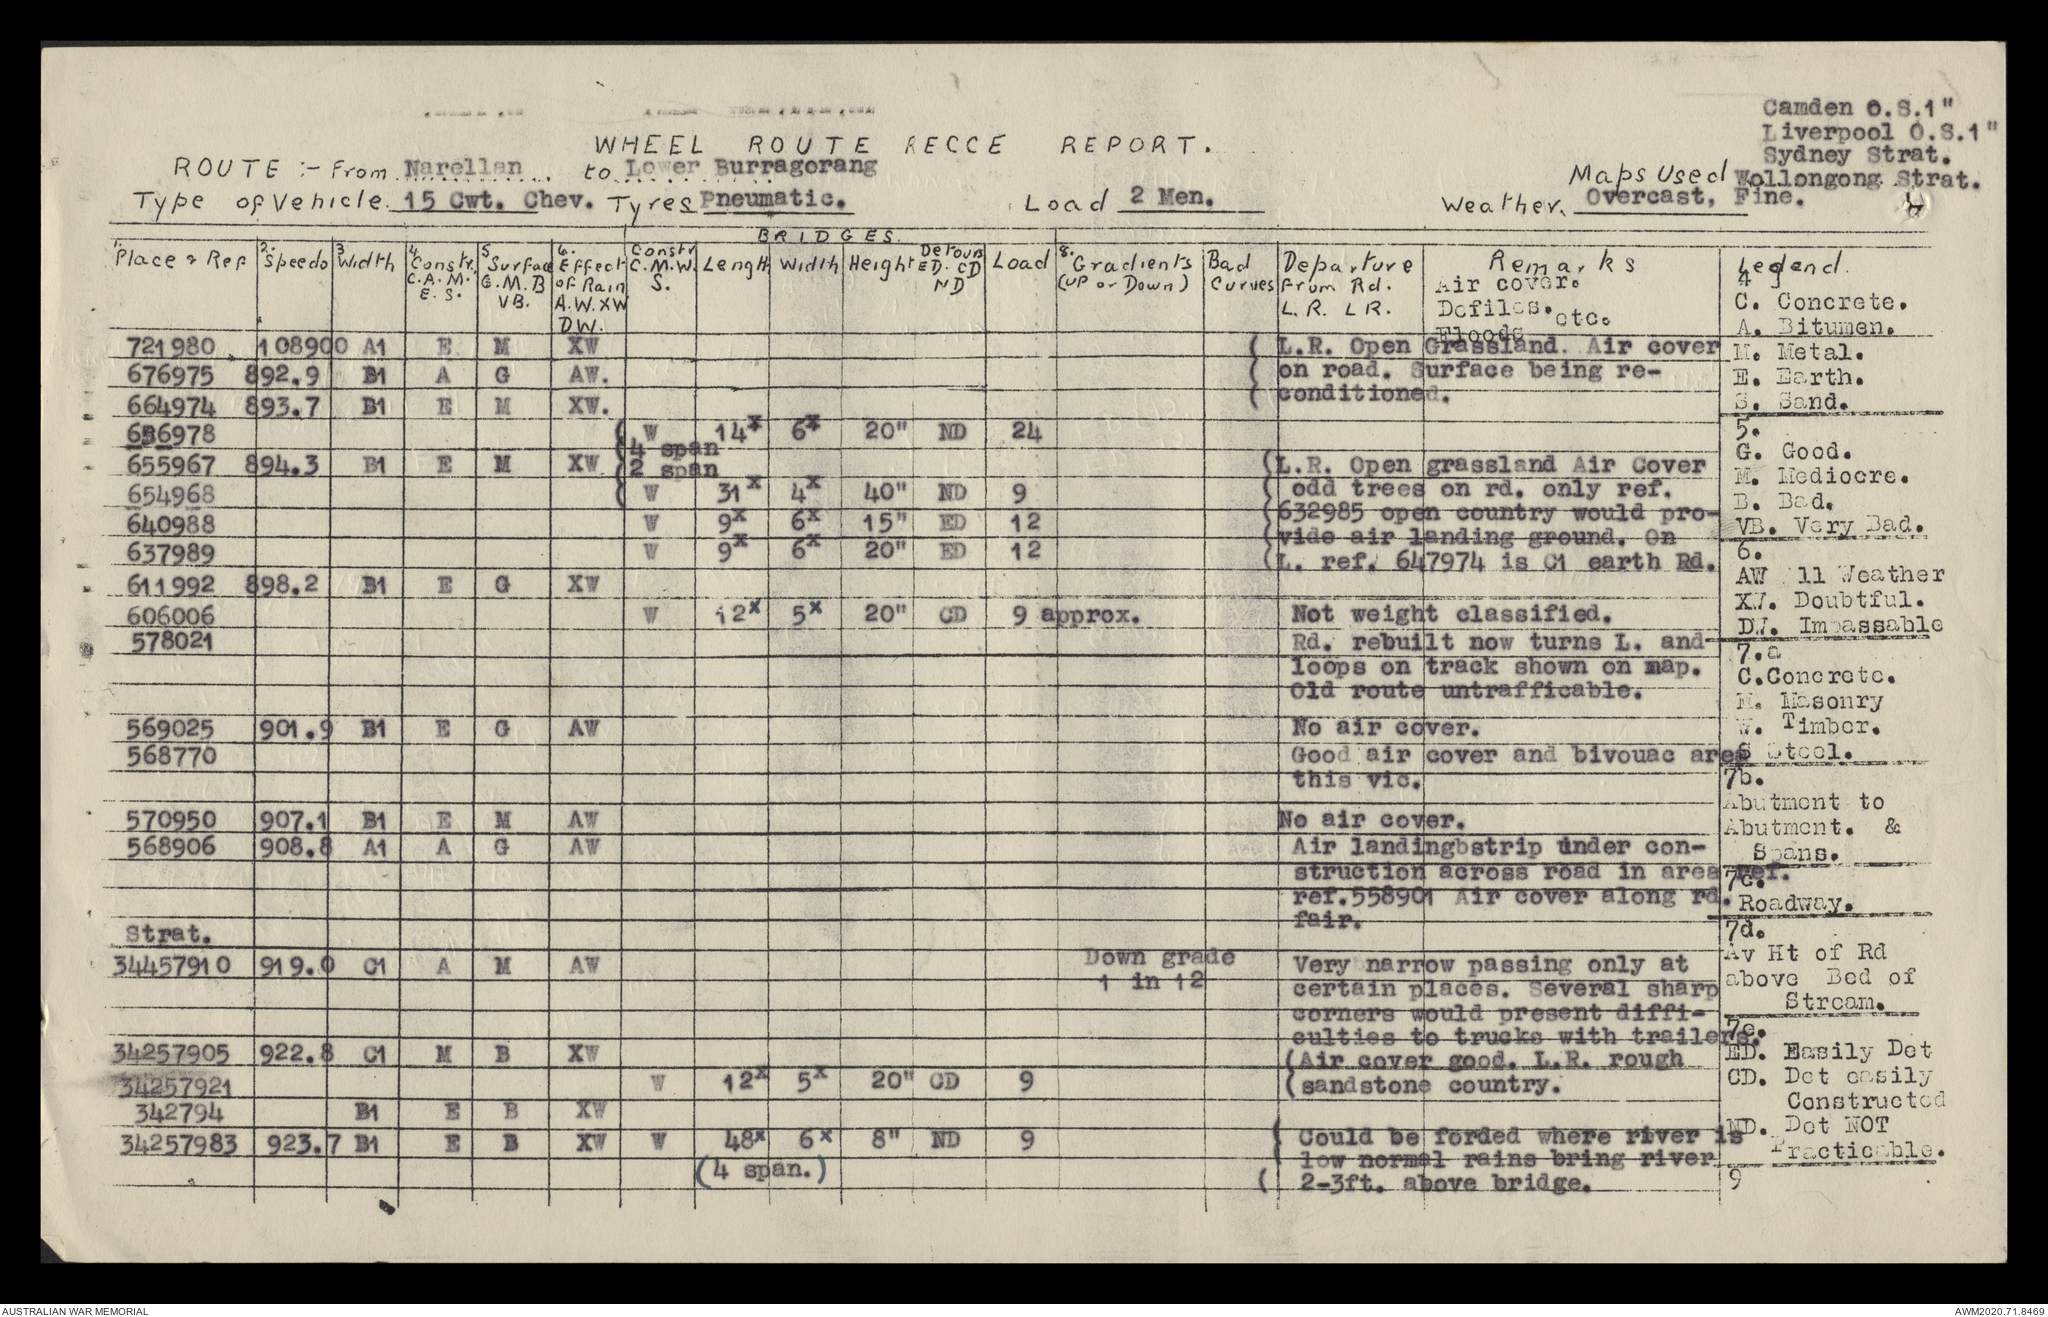 Camden O.S.1"
Liverpool O.S.1"
Sydney Strat.
Maps Used Wollongong Strat.
WHEEL ROUTE RECCE REPORT.
ROUTE :- From Narellan to Lower Burragorang
Type of Vehicle 15 Cwt. Chev. Tyres Pneumatic. Load 2 Men. Weather. Overcast, Fine.
BRIDGES.
1. Place & Ref 2. Speedo 3. Width 4. Constr. C.A.M. E.S. 5. Surface G.M.B VB. 6. Effect of Rain A.W. XW DW. Constr C.M.W. S. Length Width Height Detour ED. CD ND Load 8. Gradients (UP or Down) Bad Curves Departure From Rd. L.R. L R. Remarks Air cover. Defiles. etc. Floods
721980 108900 A1 E M XW (L.R. Open Grassland. Air cover
676975 892.9 B1 A G AW. (on road. Surface being re-
664974 893.7 B1 E M XW. (conditioned.
656978 (W 14x 6x 20" ND 24
(4 span
655967 894.3 B1 E M XW (2 span (L.R. Open grassland Air Cover
654968 (W 31x 4x 40" ND 9 (odd trees on rd. only ref.
640988 W 9x 6x 15" ED 12 (632985 open country would pro-
637989 W 9x 6x 20" ED 12 (vide air landing ground. On
(L. ref. 647974 is C1 earth Rd.
611992 898.2 B1 E G XW
606006 W 12x 5x 20" CD 9 approx. Not weight classified.
578021 Rd. rebuilt now turns L. and
loops on track shown on map.
Old route untrafficable.
569025 901.9 B1 E G AW No air cover.
568770 Good air cover and bivouac area
this vic.
570950 907.1 B1 E M AW No air cover.
568906 908.8 A1 A G AW Air landingbstrip under con-
struction across road in area ref.
ref.558901 Air cover along rd.
fair.
Strat.
34457910 919.0 C1 A M AW Down grade 1 in 12 Very narrow passing only at
certain places. Several sharp
corners would present diffi-
culties to trucks with trailers.
34257905 922.8 C1 M B XW (Air cover good. L.R. rough
34257921 W 12x 5x 20" CD 9 (sandstone country.
342794 B1 E B XW
34257983 923.7 B1 E B XW W 48x 6x 8" ND 9 (Could be forded where river is
(4 span.) low normal rains bring river
( 2-3ft. above bridge.
Legend.
4
C. Concrete.
A. Bitumen.
M. Metal.
E. Earth.
S. Sand.
5.
G. Good.
M. Mediocre.
B. Bad.
VB. Very Bad.
6.
AW ll Weather
XW. Doubtful.
DW. Impassable
7.a
C.Concrete.
M. Masonry
W. Timber.
S Steel.
7b.
Abutment to
Abutment. &
Spans.
7c.
Roadway.
7d.
Av Ht of Rd
above Bed of
Stream.
7e.
ED. Easily Det
CD. Det easily
Constructed
ND. Det NOT
Practicable.
9
AUSTRALIAN WAR MEMORIAL
AWM2020.71.8469